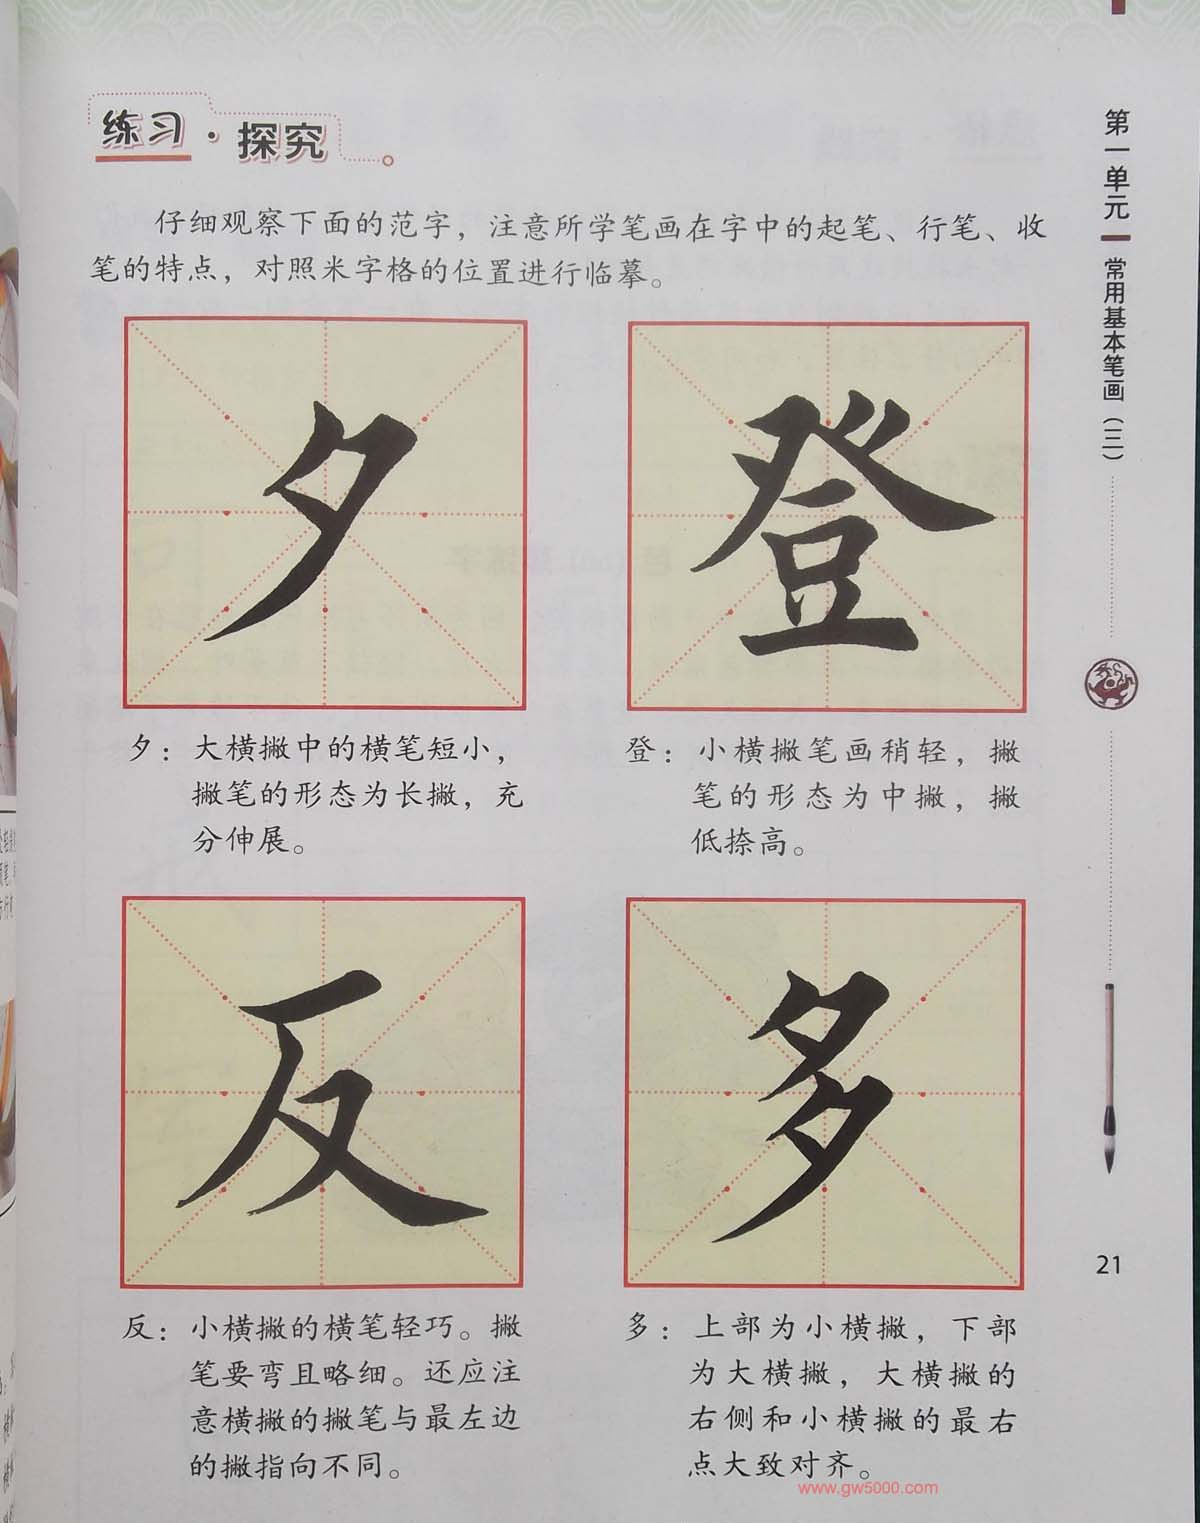 练习·探究
仔细观察下面的范字，注意所学笔画在字中的起笔、行笔、收
笔的特点，对照米字格的位置进行临摹。
夕
登
夕：大横撇中的横笔短小，
撇笔的形态为长撇，充
分伸展。
登：小横撇笔画稍轻，撇
笔的形态为中撇，撇
低捺高。
反
多
反：小横撇的横笔轻巧。撇
笔要弯且略细。还应注
意横撇的撇笔与最左边
的撇指向不同。
多：上部为小横撇，下部
为大横撇，大横撇的
右侧和小横撇的最右
点大致对齐。
第一单元
常用基本笔画（三）
21
www.gw5000.com